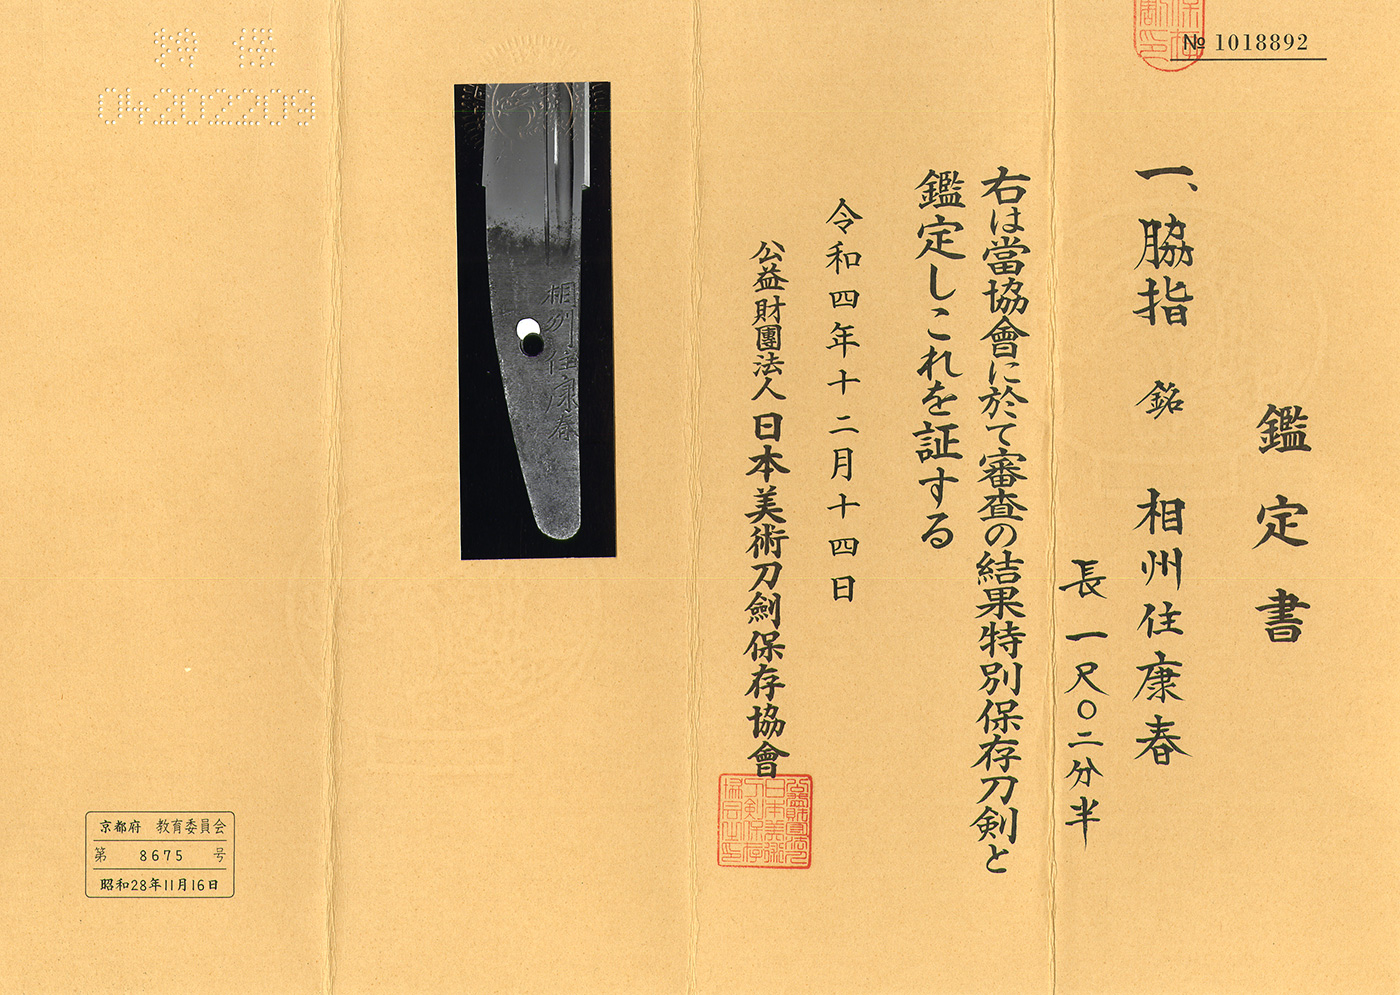 № 1018892
鑑定書
一、脇指 銘 相州住康春
長 一尺〇二分半
右は當協會に於て審査の結果特別保存刀剣と
鑑定しこれを証する
令和四年十二月十四日
公益財團法人 日本美術刀劍保存協會
相州住康春
04202209
京都府 教育委員会
第 8675 号
昭和28年11月16日